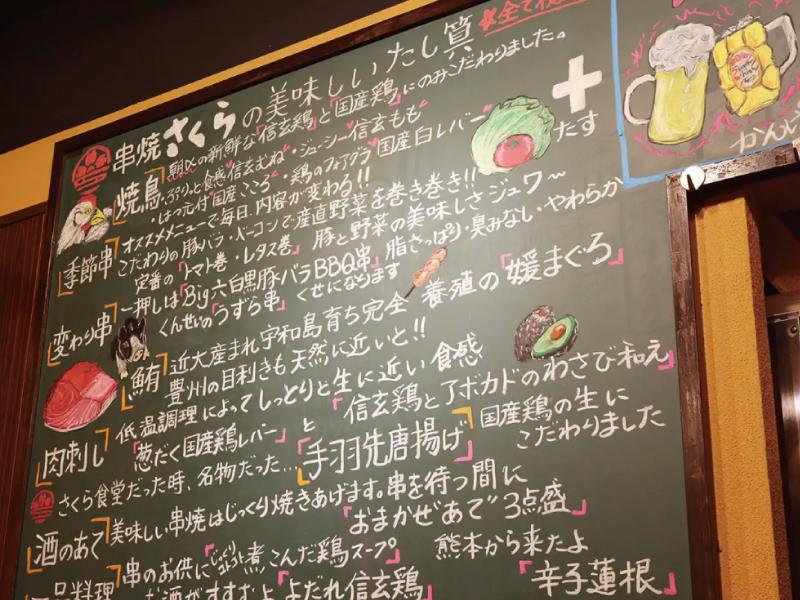 串焼さくらの美味しいいたし算
焼鳥 朝〆の新鮮な「信玄鶏」と「国産鶏」にのみこだわりました。
・ぷりっと食感"信玄むね"・ジューシー"信玄もも"
・はつ元付"国産こころ"・鶏のフォアグラ"国産白レバー"
たす
季節串 オススメメニューで毎日、内容が変わる!!
こだわりの豚バラ・ベーコンで産直野菜を巻き巻き!!
定番の「トマト巻・レタス巻」 豚と野菜の美味しさジュワ〜
変わり串 一押しは「Big六白黒豚バラBBQ串」脂さっぱり・臭みない・やわらか
くんせいの「うずら串」 くせになります
鮪 近大産まれ宇和島育ち完全養殖の「媛まぐろ」
豊州の目利きも天然に近いと!!
肉刺し 低温調理によってしっとりと生に近い食感
「葱だく国産鶏レバー」と「信玄鶏とアボカドのわさび和え」
さくら食堂だった時、名物だった…「手羽先唐揚げ」国産鶏の生にこだわりました
酒のあて 美味しい串焼はじっくり焼きあげます。串を待つ間に
「おまかせ"あて"3点盛」
一品料理 串のお供に「じっくりコトコト煮こんだ鶏スープ」 熊本から来たよ
お酒がすすむよ「よだれ信玄鶏」 「辛子蓮根」